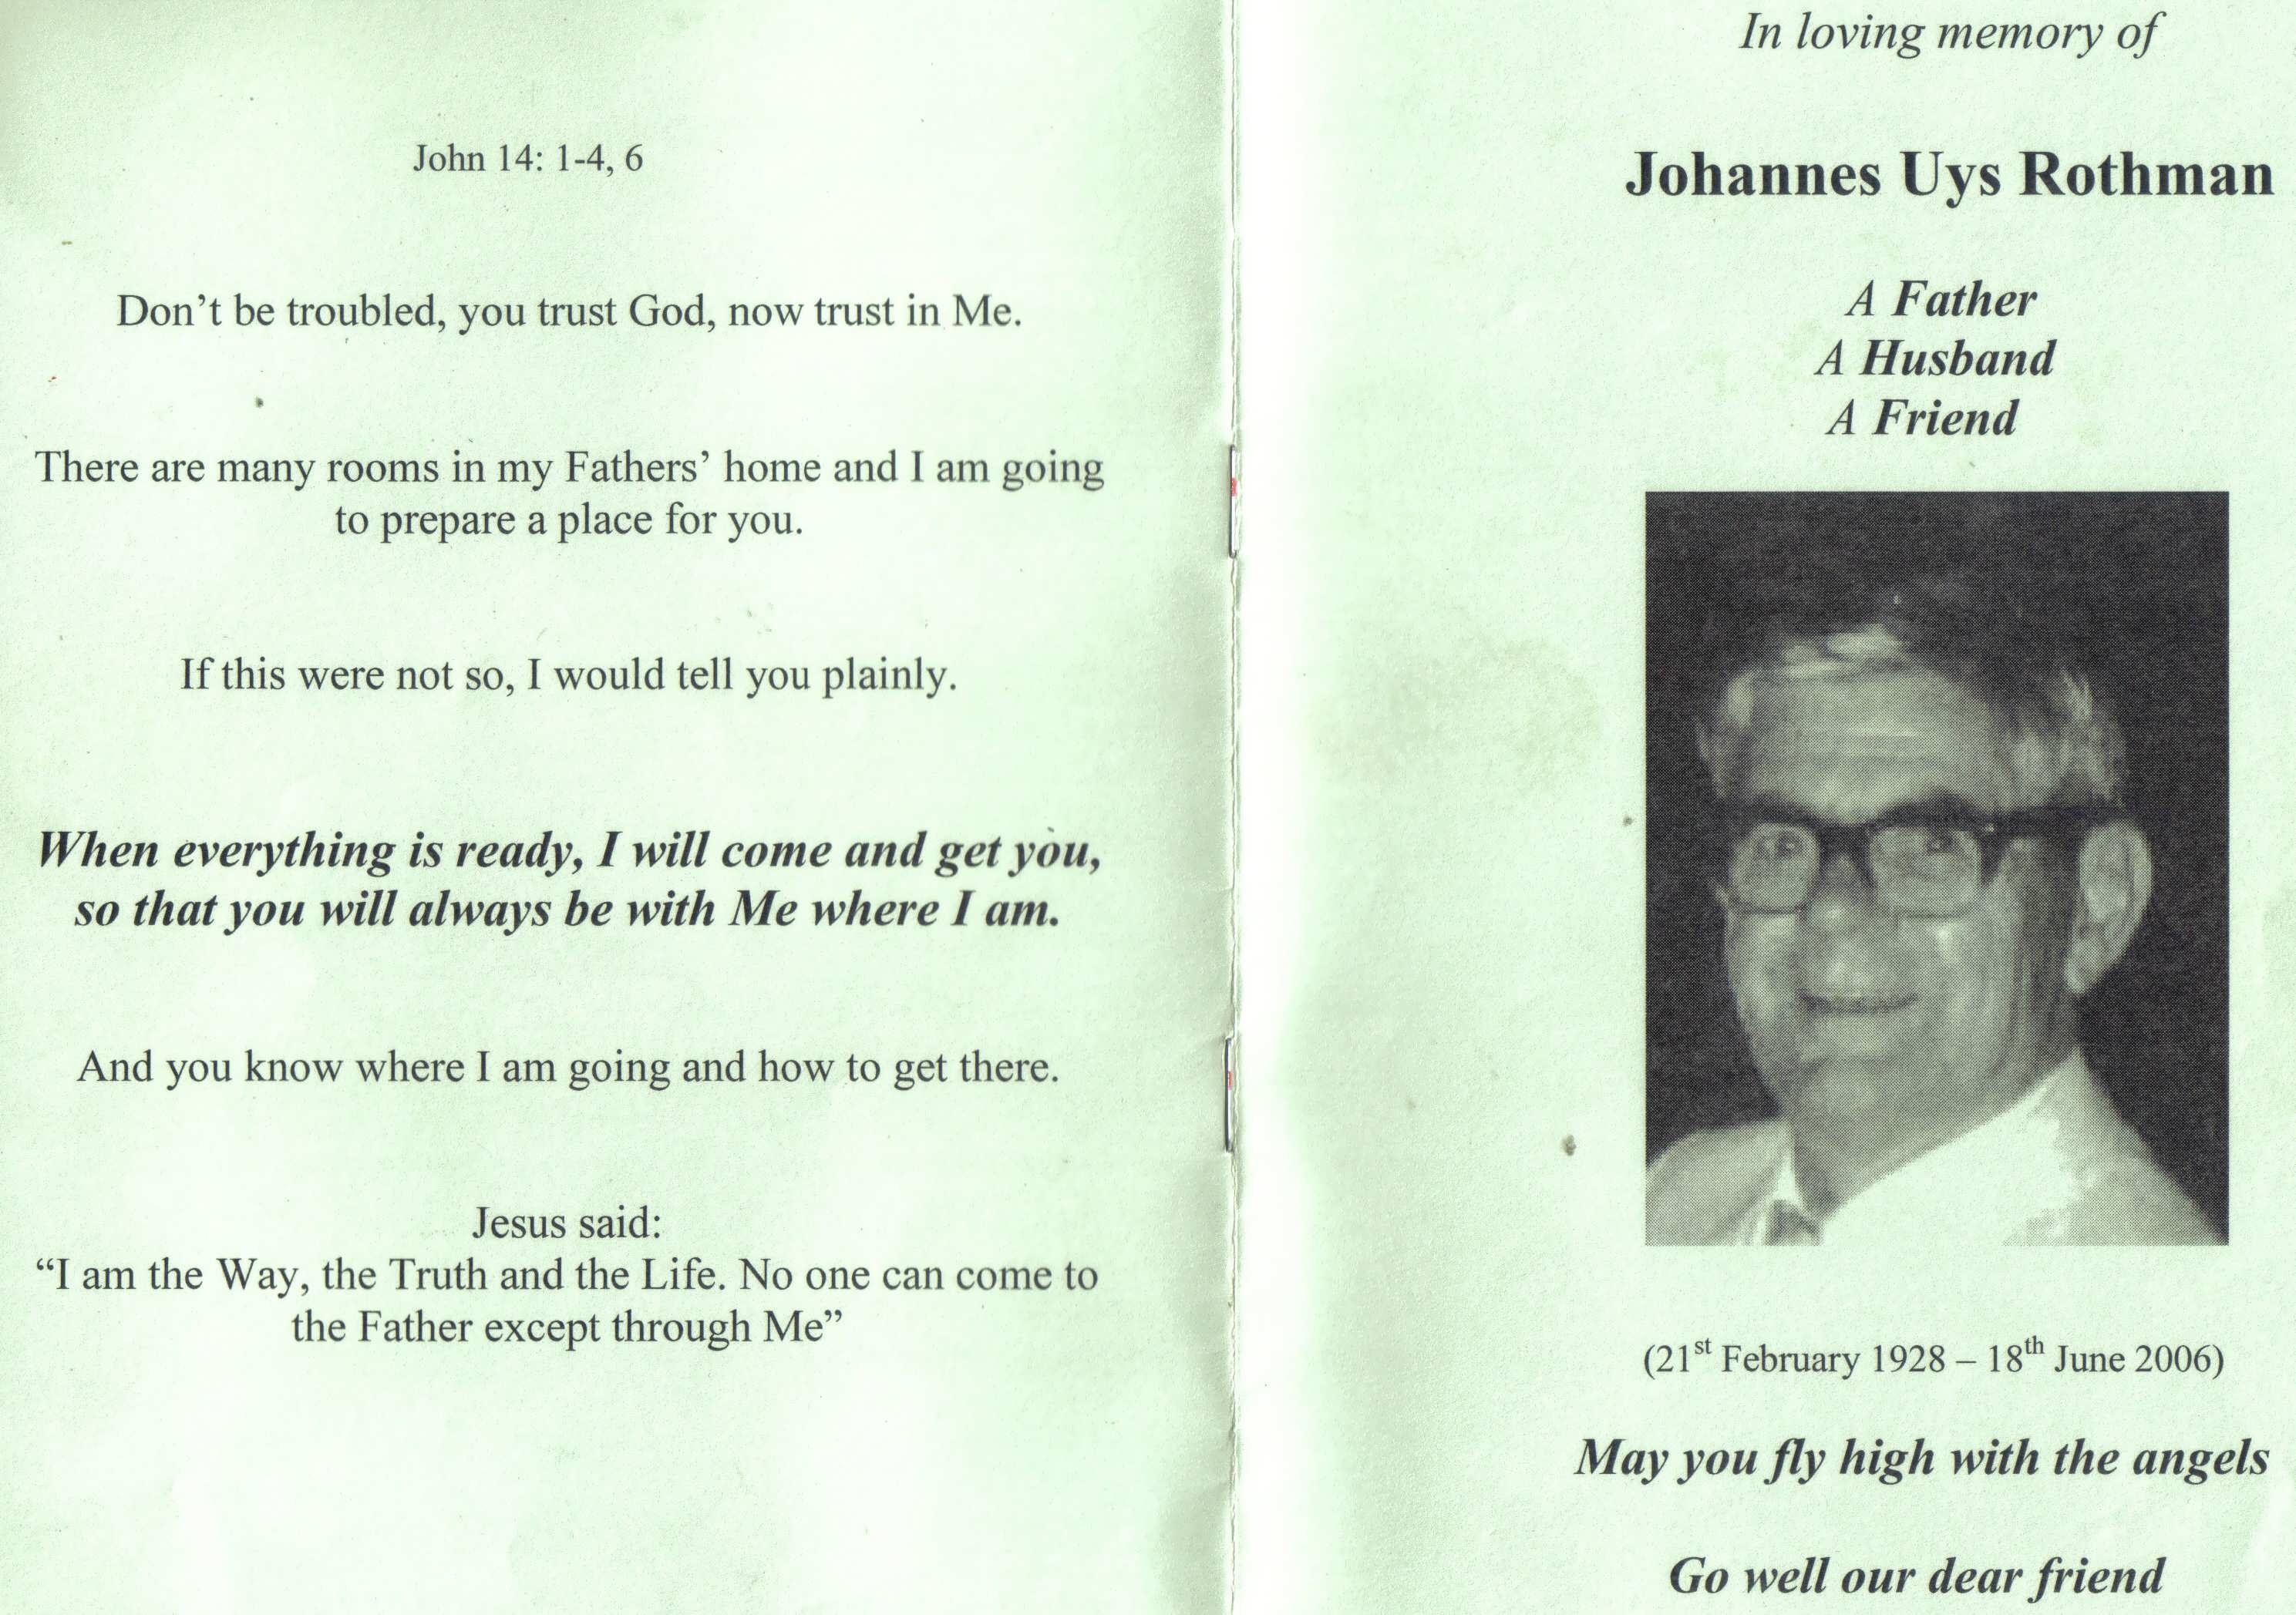 John 14: 1-4, 6
Don’t be troubled, you trust God, now trust in Me.
There are many rooms in my Fathers’ home and I am going
to prepare a place for you.
If this were not so, I would tell you plainly.
When everything is ready, I will come and get you,
so that you will always be with Me where I am.
And you know where I am going and how to get there.
Jesus said:
“I am the Way, the Truth and the Life. No one can come to
the Father except through Me”
In loving memory of
Johannes Uys Rothman
A Father
A Husband
A Friend
(21st February 1928 – 18th June 2006)
May you fly high with the angels
Go well our dear friend